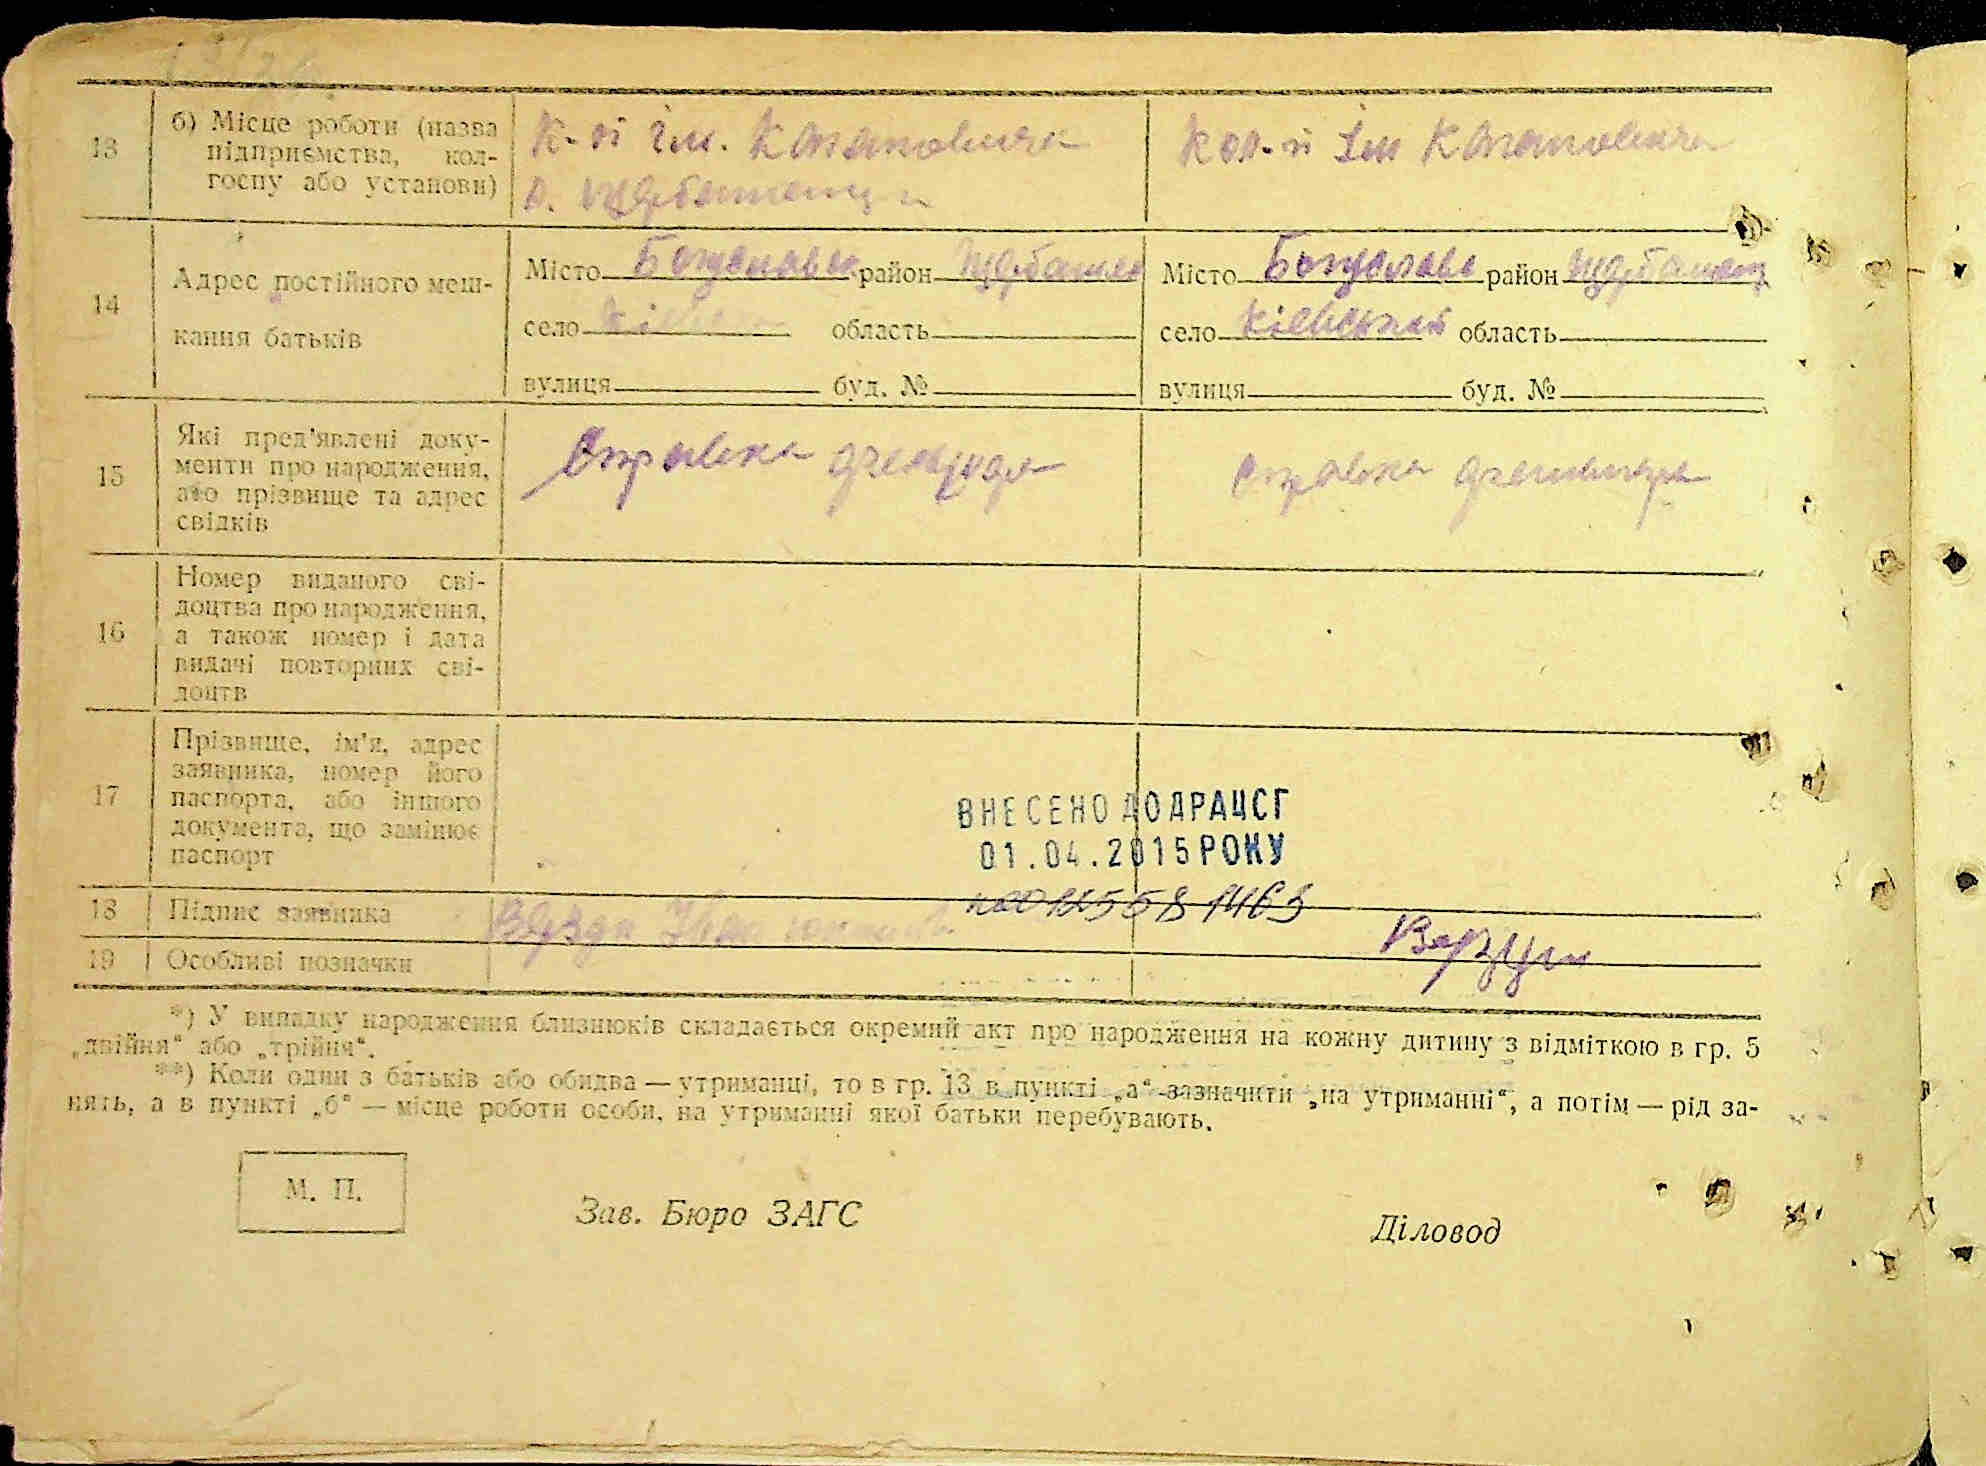 13
б) Місце роботи (назва
підприємства, кол-
госпу або установи)
К-п ім. Кагановича
с. Щербашенці
Кол-п Ім Кагановича
14
Адрес постійного меш-
кання батьків
Місто Богуславськ район Щербашен
село область
вулиця буд. №
Місто Богуславс район Щербашенц
село Київський область
вулиця буд. №
15
Які пред'явлені доку-
менти про народження,
або прізвище та адрес
свідків
Справка
Справка
16
Номер виданого сві-
доцтва про народження,
а також номер і дата
видачі повторних сві-
доцтв
17
Прізвище, ім'я, адрес
заявника, номер його
паспорта, або іншого
документа, що замінює
паспорт
ВНЕСЕНО ДО ДРАЦСГ
01.04.2015 РОКУ
18
Підпис заявника
19
Особливі позначки
*) У випадку народження близнюків складається окремий акт про народження на кожну дитину з відміткою в гр. 5
„двійня“ або „трійня“.
**) Коли один з батьків або обидва — утриманці, то в гр. 13 в пункті „а“ зазначити „на утриманні“, а потім — рід за-
нять, а в пункті „б“ — місце роботи особи, на утриманні якої батьки перебувають.
М. П.
Зав. Бюро ЗАГС
Діловод